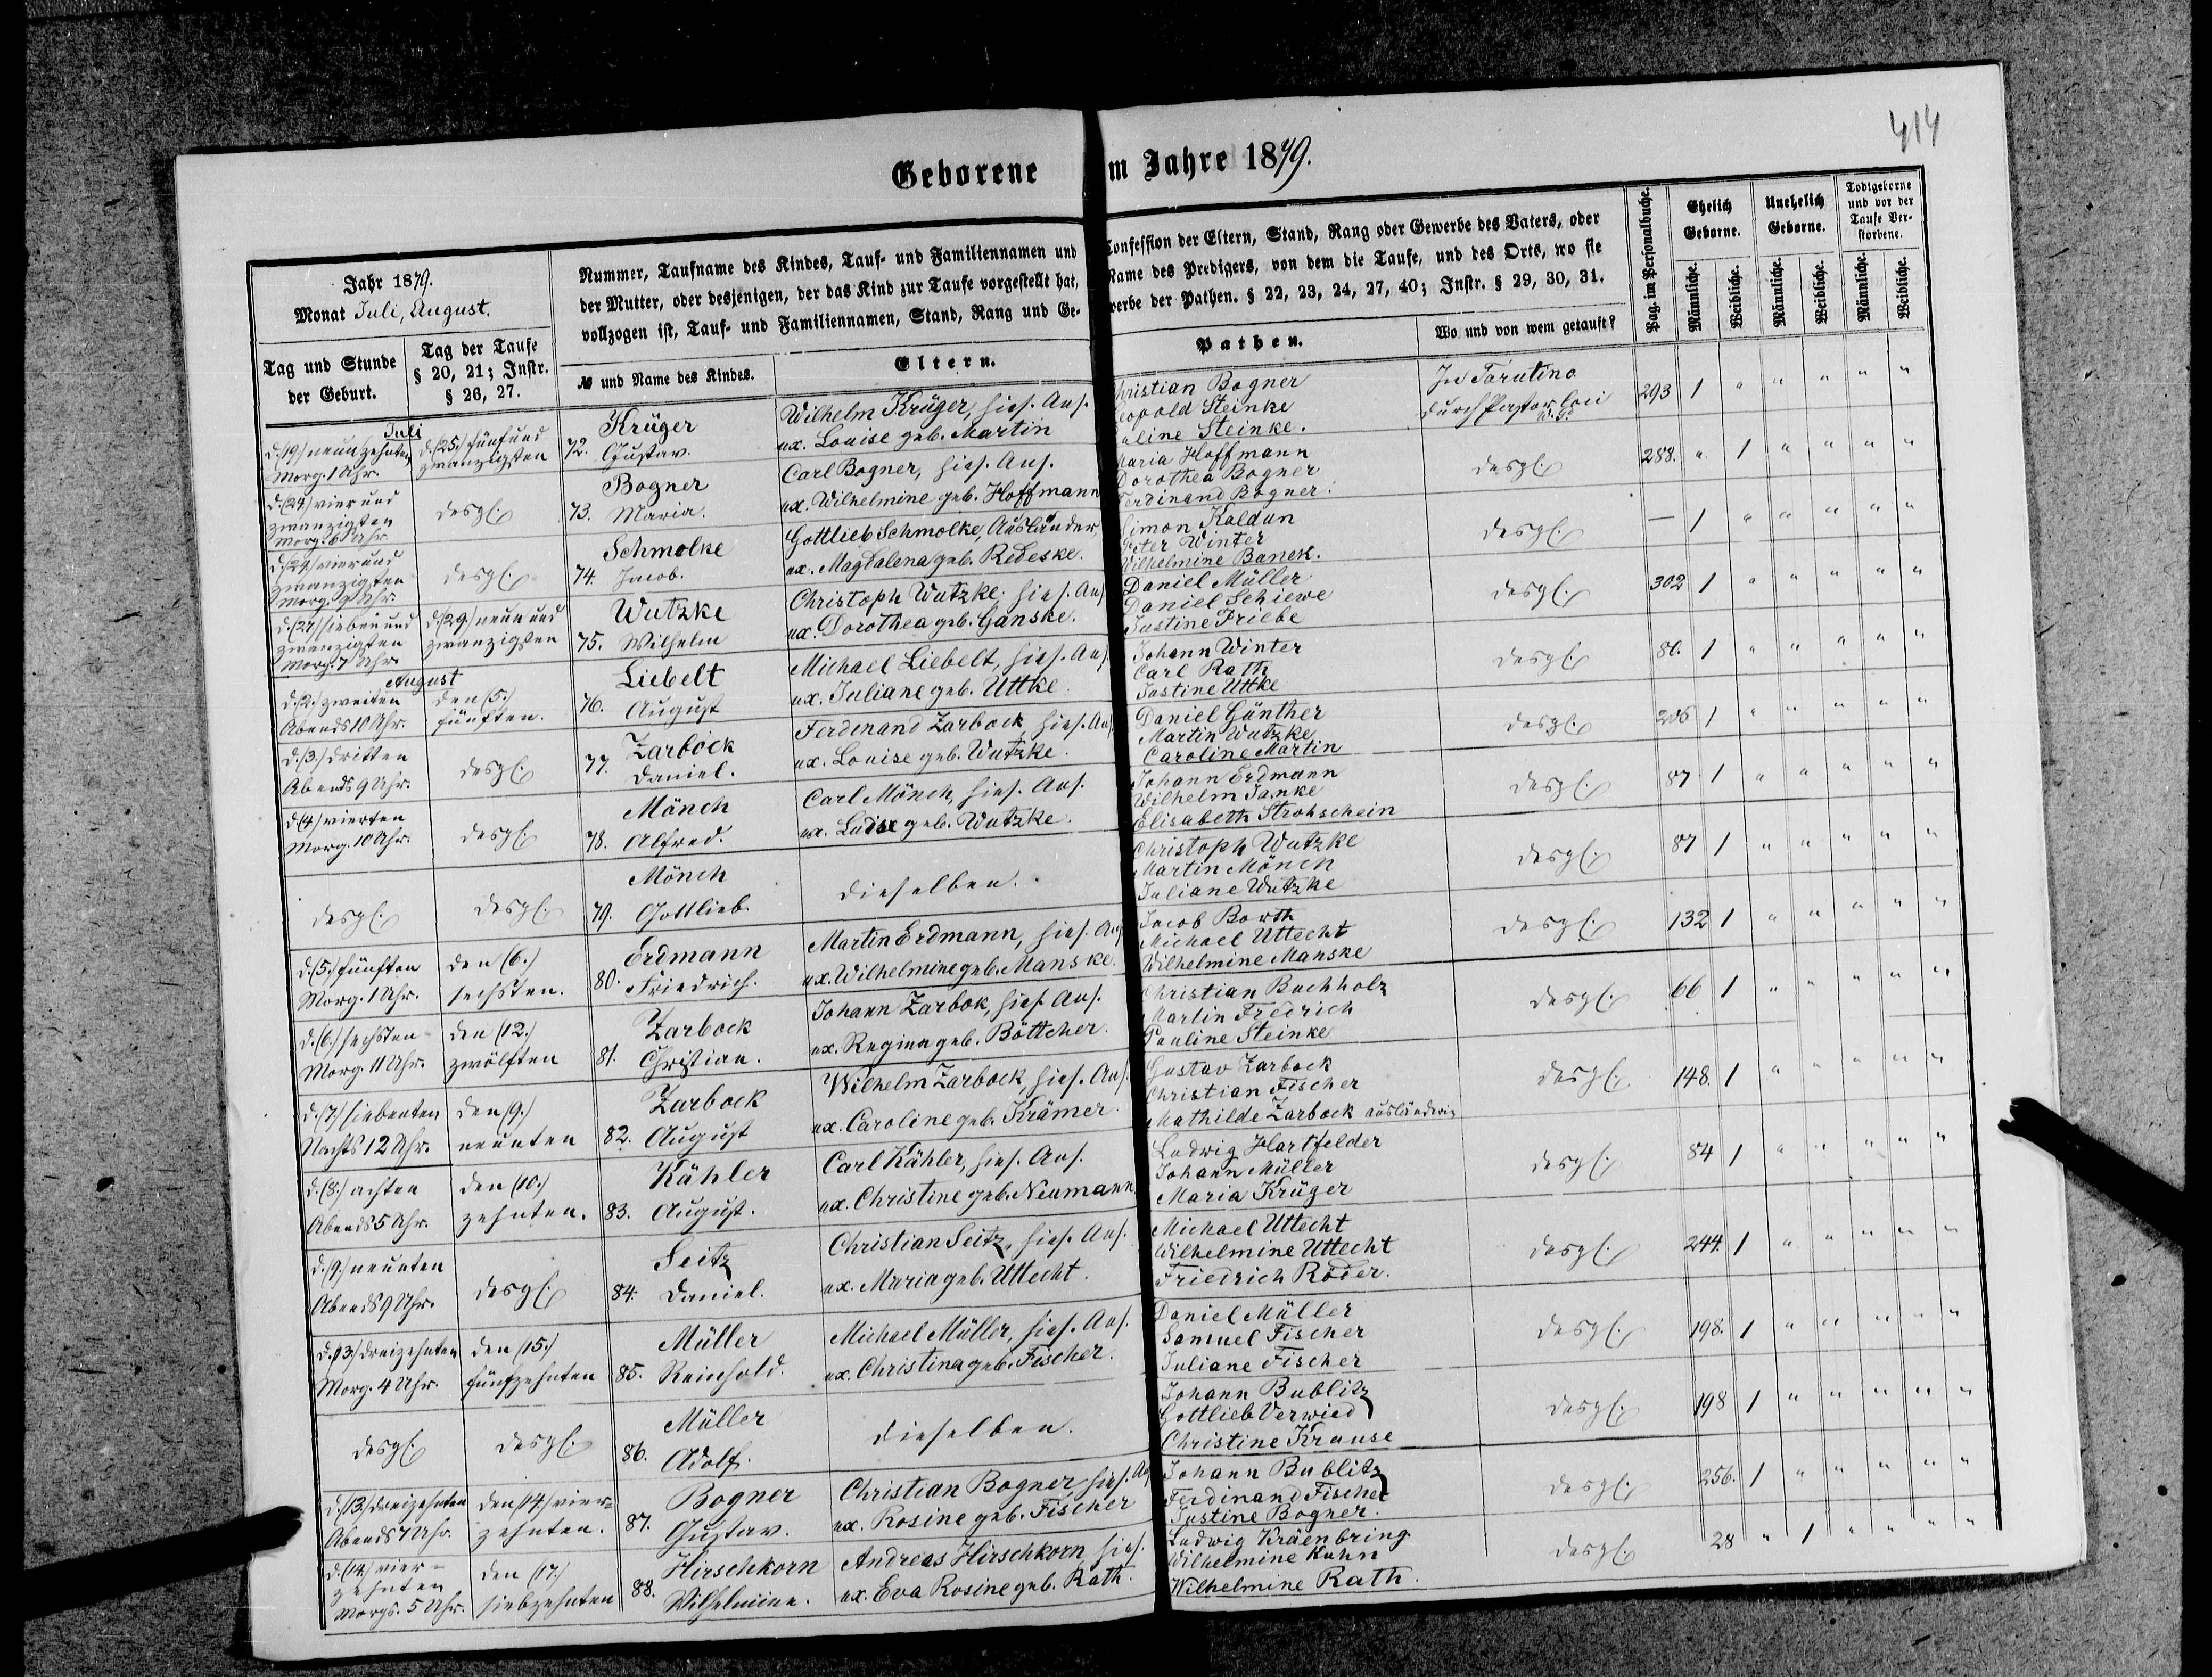 414
Geborene im Jahre 1879.
Jahr 1879.
Monat Juli, August.
Tag und Stunde der Geburt.
Tag der Taufe § 20, 21; Instr. § 26, 27.
Nummer, Taufname des Kindes, Tauf- und Familiennamen und
der Mutter, oder desjenigen, der das Kind zur Taufe vorgestellt hat,
vollzogen ist, Tauf- und Familiennamen, Stand, Rang und Ge-
№ und Name des Kindes.
Eltern.
Confession der Eltern, Stand, Rang oder Gewerbe des Vaters, oder
Name des Predigers, von dem die Taufe, und des Orts, wo sie
werbe der Pathen. § 22, 23, 24, 27, 40; Instr. § 29, 30, 31.
Pathen.
Wo und von wem getauft?
Pag. im Personalbuche.
Ehelich Geborne.
Unehelich Geborne.
Todtgeborne und vor der Taufe Verstorbene.
Männliche. Weibliche. Männliche. Weibliche. Männliche. Weibliche.
Juli
d. (19.) neunzehnten
Morg. 1 Uhr.
d. (25.) fünfund
zwanzigsten
Krüger
72. Gustav.
Wilhelm Krüger, hies. Ans.
ux. Louise geb. Martin
Christian Bogner
Leopold Steinke
Pauline Steinke.
In Tarutino
durch Pastor loci
293 1 " " " " "
d. (24.) vier und
zwanzigsten
Morg. 6 Uhr.
desgl.
Bogner
73. Maria.
Carl Bogner, hies. Ans.
ux. Wilhelmine geb. Hoffmann
Maria Hoffmann
Dorothea Bogner
Ferdinand Bogner.
desgl.
288. " 1 " " " "
d. (24.) vier und
zwanzigsten
Morg. 9 Uhr.
desgl.
Schmolke
74. Jacob.
Gottlieb Schmolke, Ausländer,
ux. Magdalena geb. Redeske.
Simon Kaldun
Peter Winter
Wilhelmine Banek.
desgl.
— 1 " " " " "
d. (27.) sieben und
zwanzigsten
Morg. 7 Uhr.
d. (29.) neun und
zwanzigsten
Wutzke
75. Wilhelm
Christoph Wutzke, hies. Ans
ux. Dorothea geb. Ganske.
Daniel Müller
Daniel Schiewe
Justine Friebe
desgl.
302 1 " " " " "
August
d. (2.) zweiten
Abends 10 Uhr.
den (5.)
fünften.
Liebelt
76. August
Michael Liebelt, hies. Ans.
ux. Juliane geb. Uttke.
Johann Winter
Carl Rath
Justine Uttke
desgl.
80. 1 " " " " "
d. (3.) dritten
Abends 9 Uhr.
desgl.
Zarbock
77. Daniel.
Ferdinand Zarbock, hies. Ans
ux. Louise geb. Wutzke.
Daniel Günther
Martin Wutzke
Caroline Martin
desgl.
206 1 " " " " "
d. (4.) vierten
Morg. 10 Uhr.
desgl.
Mönch
78. Alfred.
Carl Mönch, hies. Ans.
ux. Luise geb. Wutzke.
Johann Erdmann
Wilhelm Janke
Elisabeth Strohschein
desgl.
87 1 " " " " "
desgl.
desgl.
Mönch
79. Gottlieb.
dieselben.
Christoph Wutzke
Martin Mönch
Juliane Wutzke
desgl.
87 1 " " " " "
d. (5.) fünften
Morg. 1 Uhr.
den (6.)
sechsten.
Erdmann
80. Friedrich.
Martin Erdmann, hies. Ans
ux. Wilhelmine geb. Manske.
Jacob Borth
Michael Uttecht
Wilhelmine Manske
desgl.
132 1 " " " " "
d. (6.) sechsten
Morg. 11 Uhr.
den (12.)
zwölften
Zarbock
81. Christian.
Johann Zarbok, hies. Ans.
ux. Regina geb. Böttcher.
Christian Buchholz
Martin Fredrich
Pauline Steinke
desgl.
66 1 " " " " "
d. (7.) siebenten
Nachts 12 Uhr.
den (9.)
neunten
Zarbock
82. August
Wilhelm Zarbock, hies. Ans.
ux. Caroline geb. Krämer.
Gustav Zarbock
Christian Fischer
Mathilde Zarbock ausländerin
desgl.
148. 1 " " " " "
d. (8.) achten
Abends 5 Uhr.
den (10.)
zehnten.
Kähler
83. August.
Carl Kähler, hies. Ans.
ux. Christine geb. Neumann.
Ludwig Hartfelder
Johann Müller
Maria Krüger
desgl.
84 1 " " " " "
d. (9.) neunten
Abends 9 Uhr.
desgl.
Seitz
84. Daniel.
Christian Seitz, hies. Ans.
ux. Maria geb. Uttecht.
Michael Uttecht
Wilhelmine Uttecht
Friedrich Röder.
desgl.
244. 1 " " " " "
d. (13.) dreizehnten
Morg. 4 Uhr.
den (15.)
fünfzehnten
Müller
85. Reinhold.
Michael Müller, hies. Ans.
ux. Christina geb. Fischer.
Daniel Müller
Samuel Fischer
Juliane Fischer
desgl.
198. 1 " " " " "
desgl.
desgl.
Müller
86. Adolf.
dieselben.
Johann Bublitz
Gottlieb Verwied
Christine Krause
desgl.
198 1 " " " " "
d. (13.) dreizehnten
Abends 7 Uhr.
den (14.) vier-
zehnten.
Bogner
87. Gustav.
Christian Bogner, hies. Ans
ux. Rosine geb. Fischer
Johann Bublitz
Ferdinand Fischer
Justine Bogner.
desgl.
256. 1 " " " " "
d. (14.) vier-
zehnten
Morgs. 5 Uhr.
den (17.)
siebzehnten
Hirschkorn
88. Wilhelmine.
Andreas Hirschkorn, hies.
ux. Eva Rosine geb. Rath.
Ludwig Kräenbring
Wilhelmine Kuhn
Wilhelmine Rath.
desgl.
28 " 1 " " " "